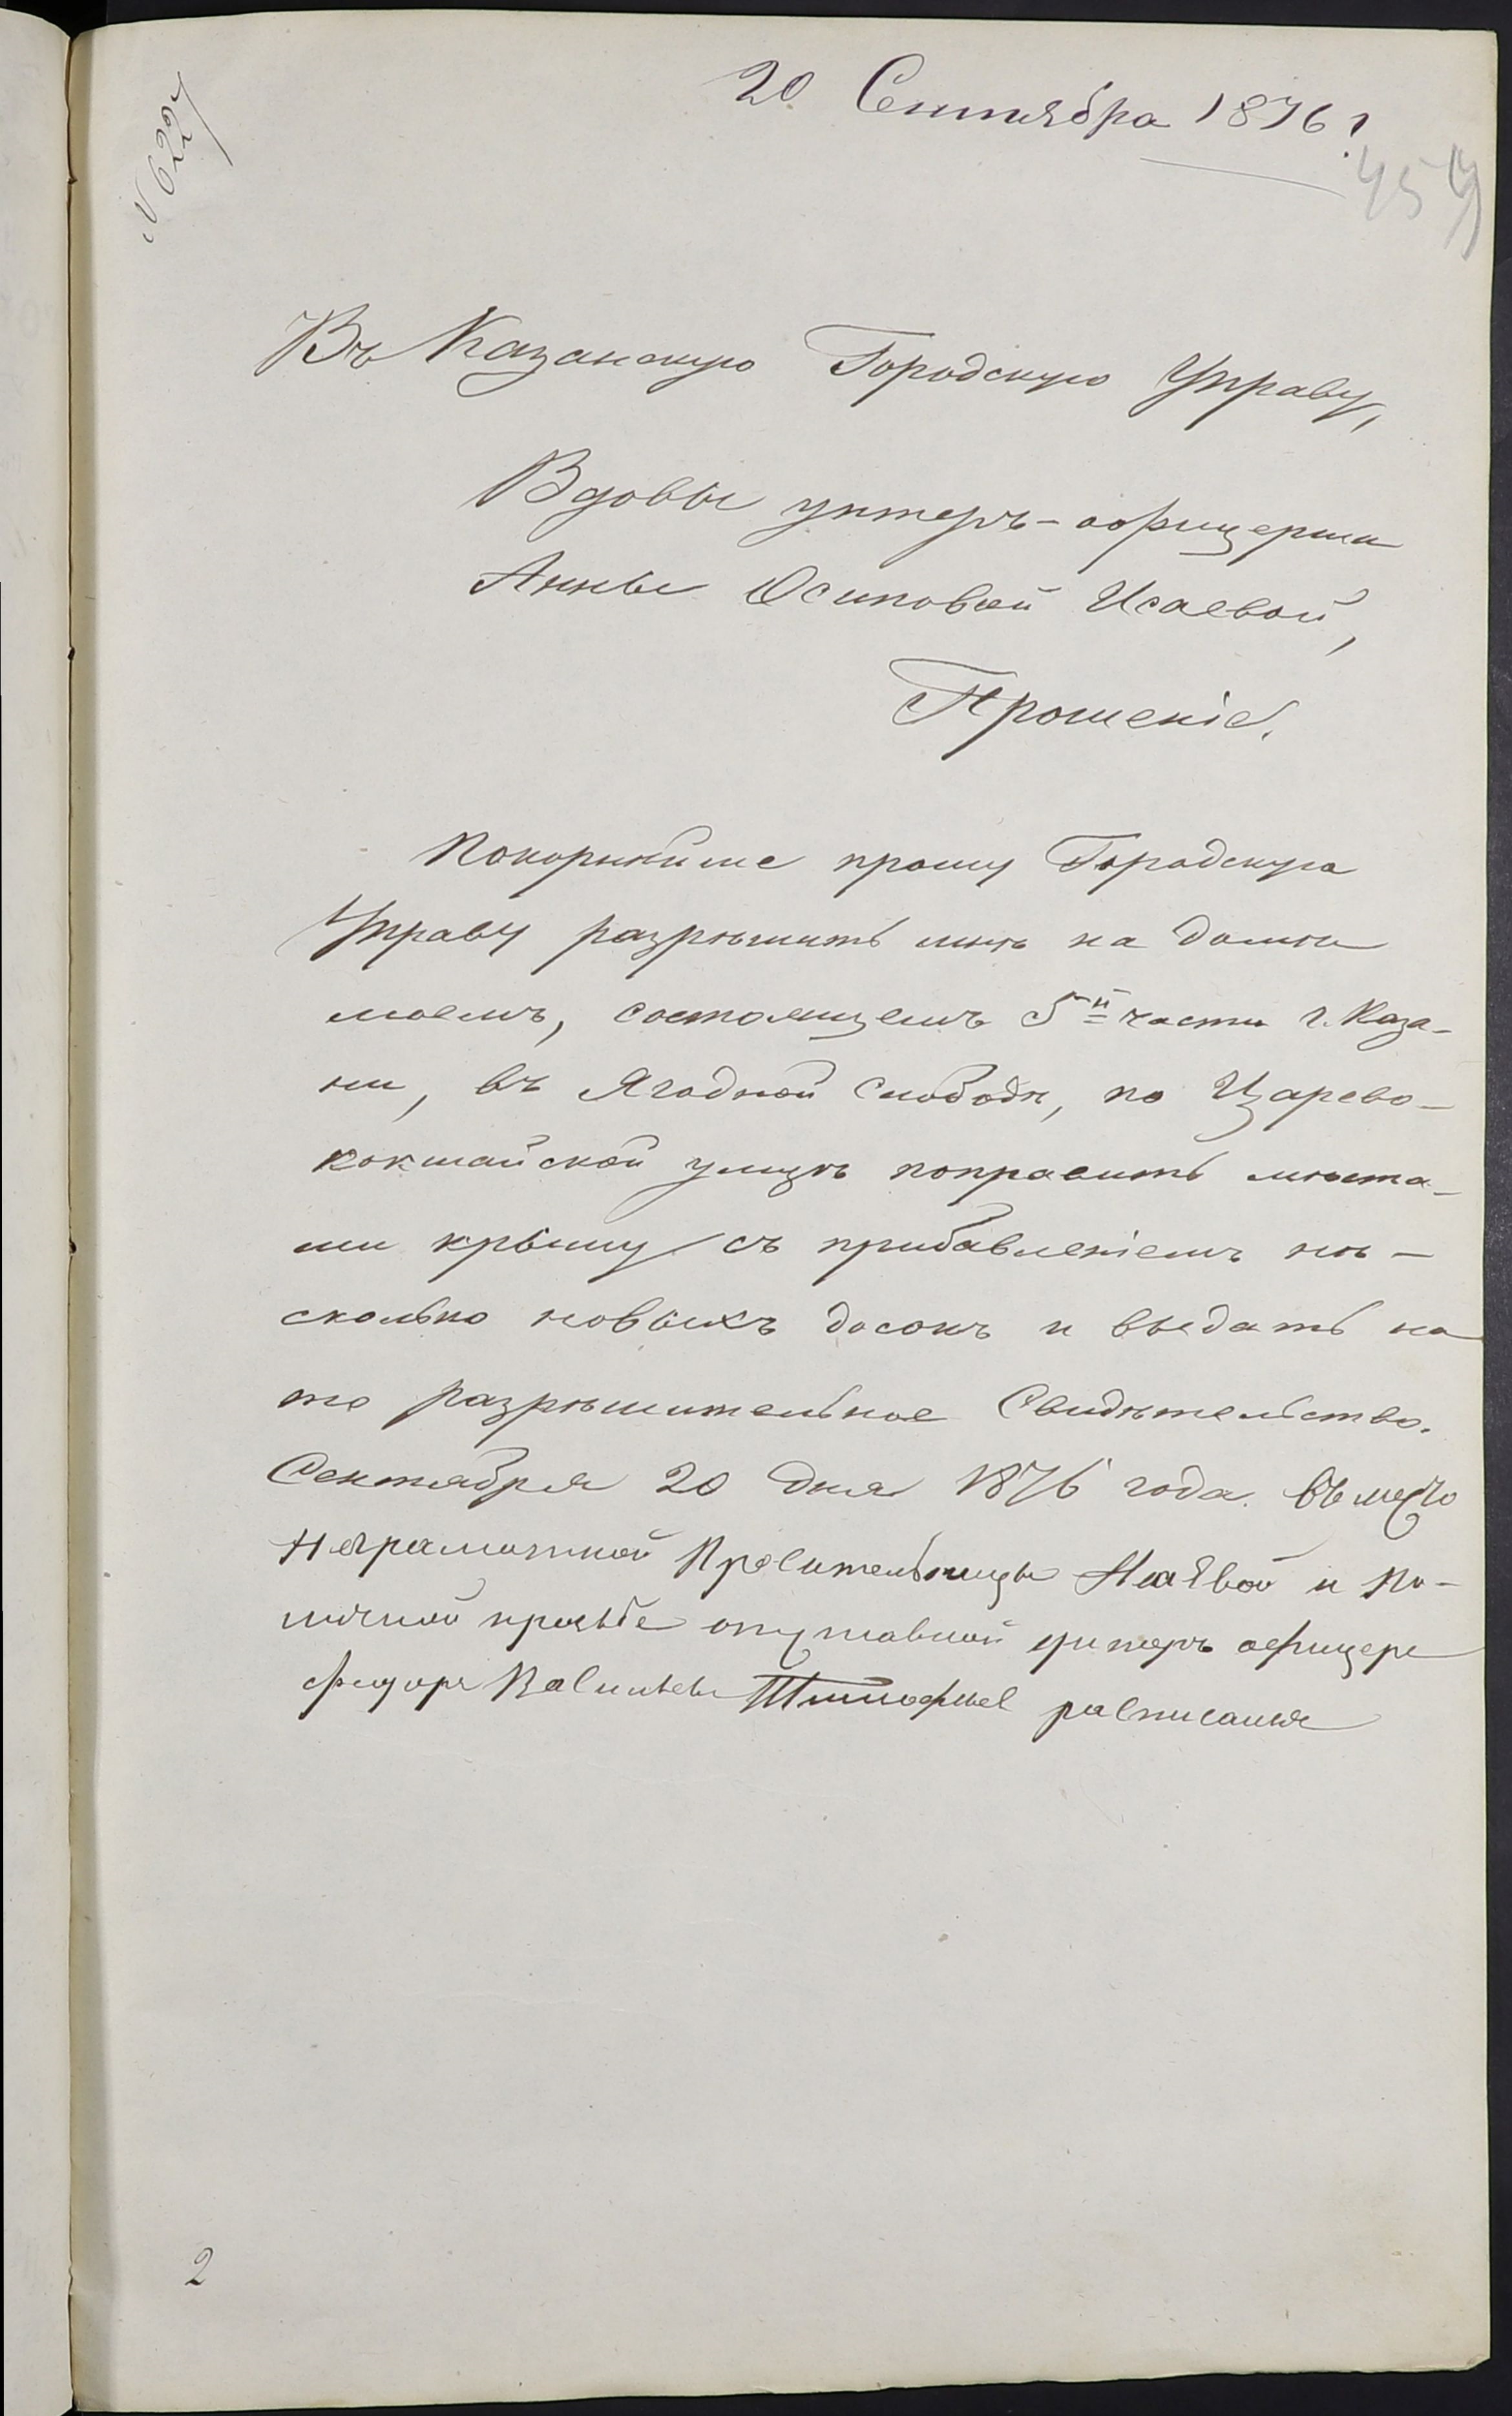 20 Сентября 1876 г.
№ 6227
459
Въ Казанскую Городскую Управу,
Вдовы унтеръ-офицерши
Анны Осиповой Исаевой,
Прошеніе.
Покорнѣйше прошу Городскую
Управу разрѣшить мнѣ на домѣ
моемъ, состоящемъ 5й части г. Каза-
ни, въ Ягодной Слободѣ, по Царево-
кокшайской улицѣ поправить мѣста-
ми крышу съ прибавленіемъ нѣ-
сколько новыхъ досокъ и выдать на
то разрѣшительное Свидѣтельство.
Сентября 20 дня 1876 года. Въместо
Неграмотной Просительницы Исаевой и по-
личной прозьбе отуставной унтеръ афицеръ
федоръ Васильевъ Тимофѣев расписался
2